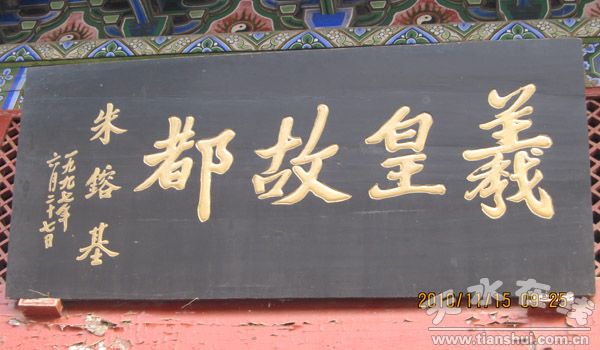 羲皇故都
朱鎔基
一九九七年
六月二十七日
2010/11/15 09:25
天水在线
www.tianshui.com.cn